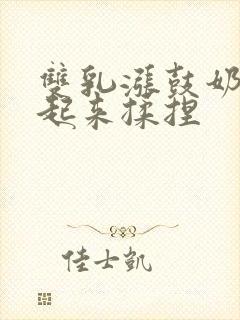 雙乳漲鼓奶
起来揉捏
佳士凱